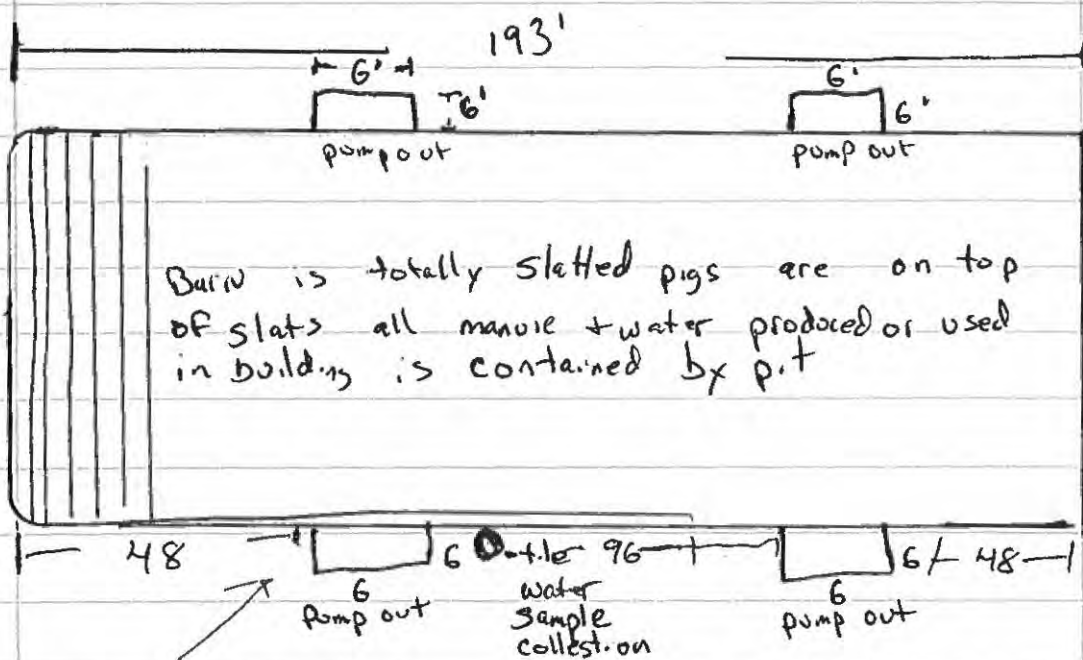 193'
6'
6'
6'
6'
pump out
pump out
Barn is totally slatted pigs are on top
of slats all manure + water produced or used
in building is contained by pit
48
6
tile
96
6
48
6
pump out
water
sample
collection
6
pump out